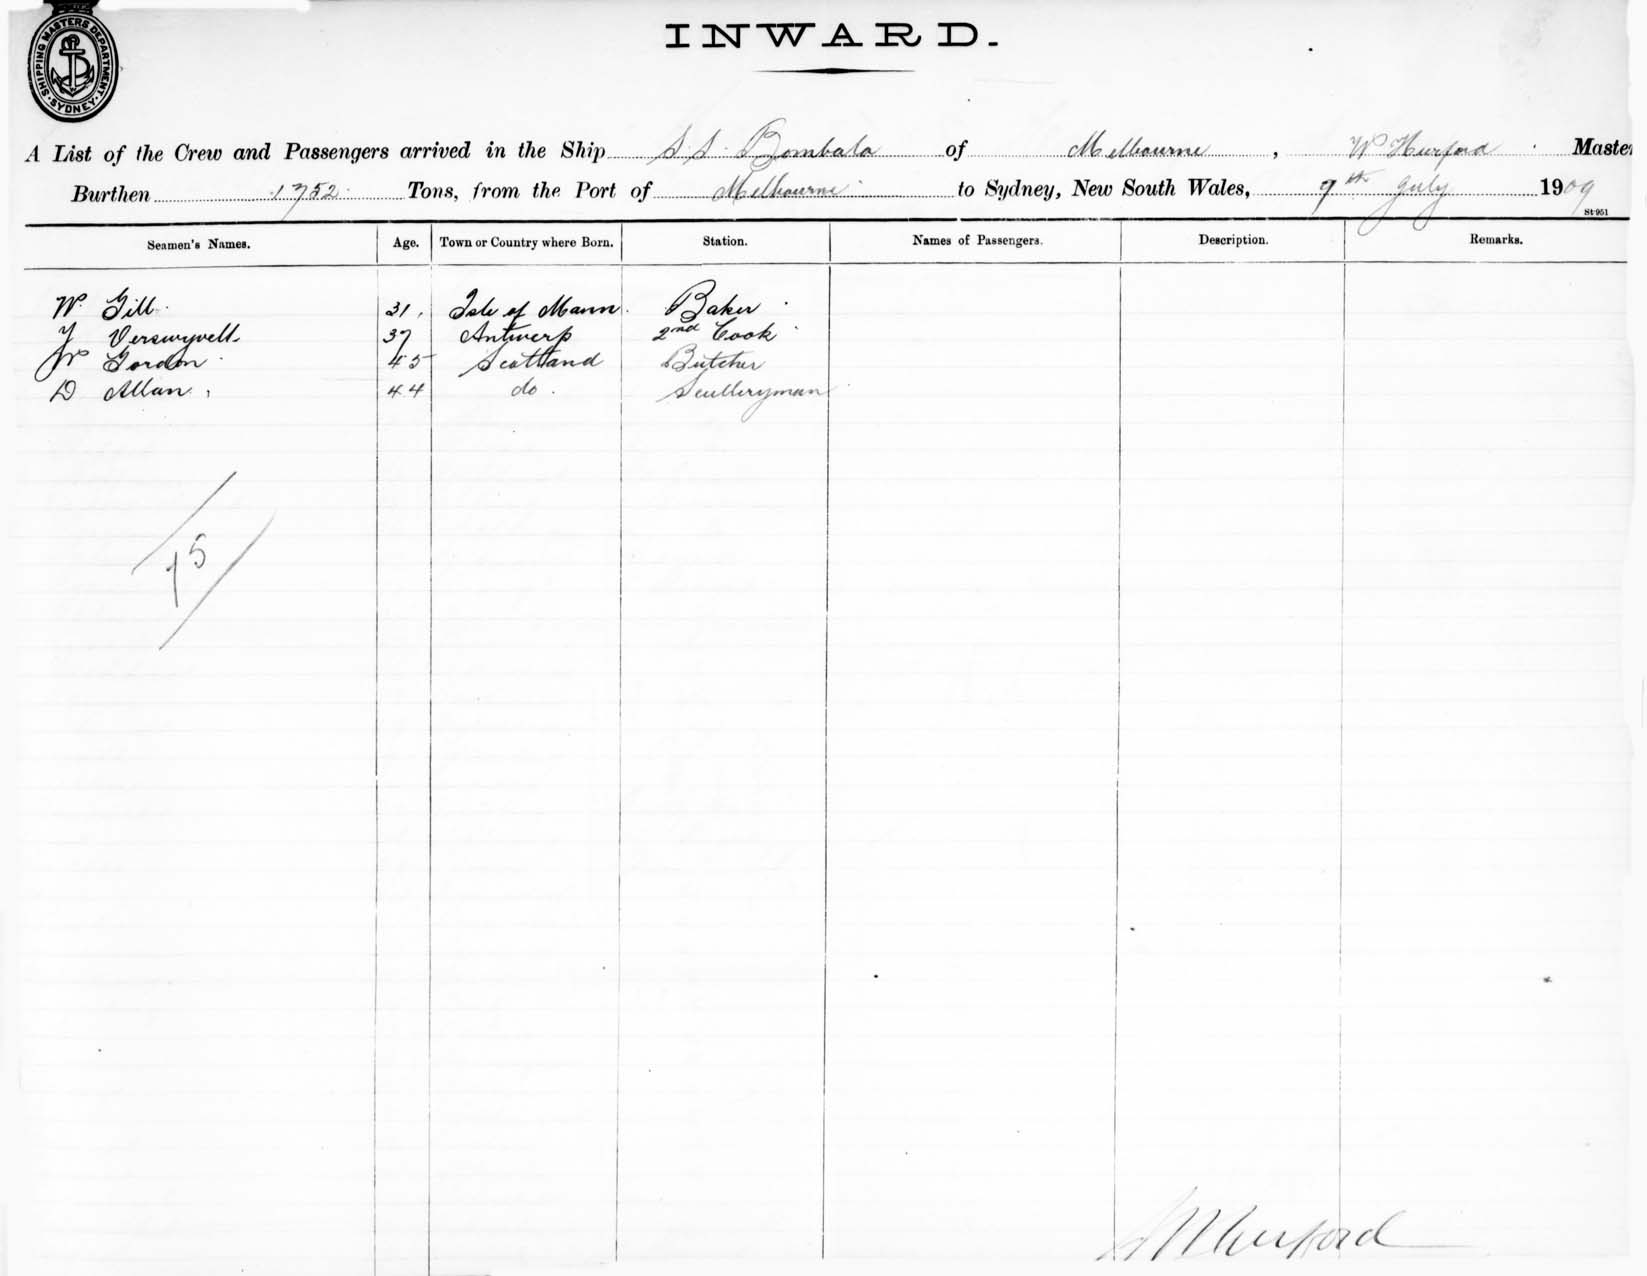 SHIPPING MASTERS DEPARTMENT · SYDNEY ·
INWARD.
A List of the Crew and Passengers arrived in the Ship S.S. Bombala of Melbourne, W Hurford Master
Burthen 1752 Tons, from the Port of Melbourne to Sydney, New South Wales, 9th July 1909
St 951
Seamen's Names. Age. Town or Country where Born. Station. Names of Passengers. Description. Remarks.
W. Gill 31 Isle of Mann Baker
37 Antwerp 2nd Cook
W Gordon 45 Scotland Butcher
D Allan 44 do. Sculleryman
75
Hurford